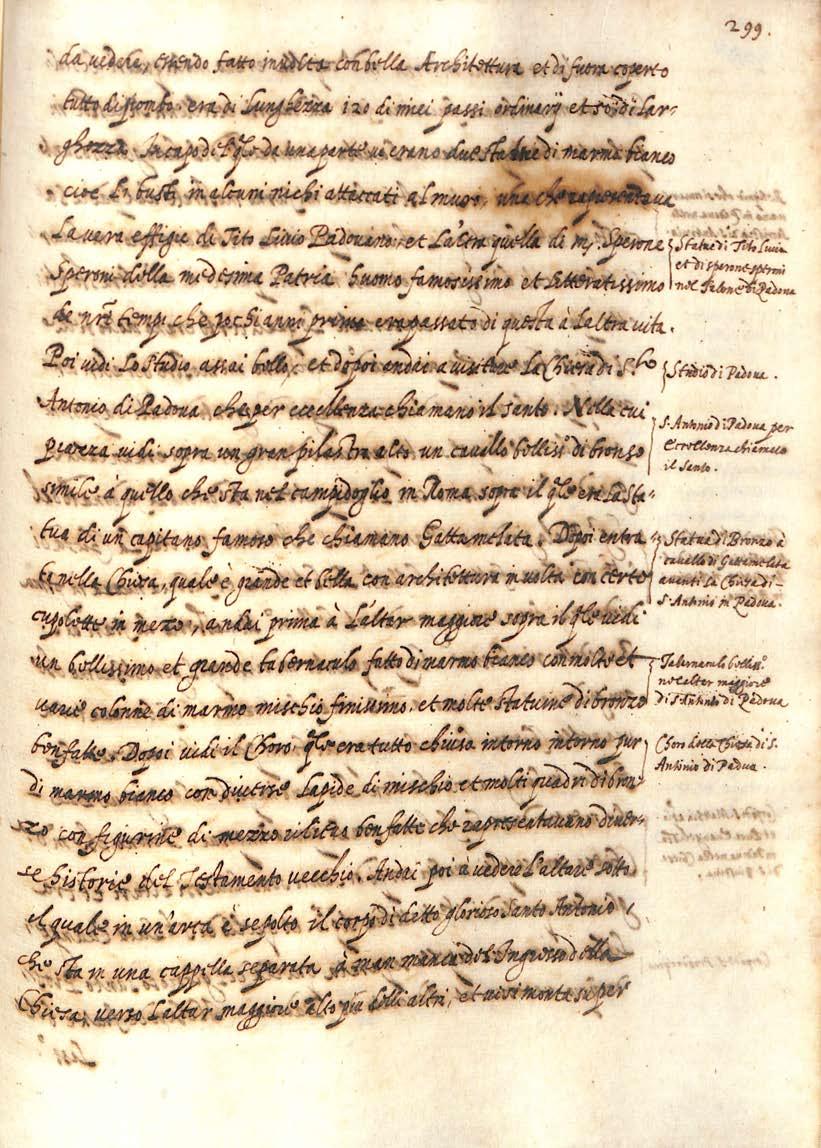 299.
da vedere, essendo fatto in volta con bella Architettura et di fuora coperto
tutto di piombo. era di Lunghezza 120 di miei passi ordinarij et 50 di Lar-
ghezza. In capo del qle da una parte vi erano due statue di marmo bianco
cioè li busti in alcuni nichi attaccati al muro, una che rapresentava
La vera effigie di Tito Livio Padovano, et L'altra quella di mr. Sperone
Speroni della medesima Patria huomo famosissimo et litteratissimo
de nri tempi che pochi anni prima era passato di questa à laltra vita.
Poi vidi Lo studio assai bello, et dopoi andai a visitare La Chiesa di S.to
Antonio di Padova che per eccellenza chiamano il santo. Nella cui
piazza vidi sopra un gran pilastro alto un cavallo bellisso di bronzo
simile à quello che sta nel campidoglio in Roma sopra il qle era La sta-
tua di un capitano famoso che chiamano Gattamelata. Dopoi entra-
to nella Chiesa, quale è grande et bella con architettura in volta con certe
cupolette in mezo, andai prima à L'altar maggiore sopra il qle vidi
un bellissimo et grande tabernaculo fatto di marmo bianco con molte et
varie colonne di marmo mischio finissimo, et molte statuine di bronzo
ben fatte. Dopoi vidi il Choro qle era tutto chiuso intorno intorno pur
di marmo bianco con diverse lapide di mischio et molti quadri di bron-
zo con figurine di mezzo rilievo ben fatte che rapresentavano diver-
se historie del Testamento vecchio. Andai poi à vedere l'altare sotto
el quale in un'arca è sepolto il corpo di detto glorioso Santo Antonio,
che sta in una cappella separata à man manca del Ingresso della
Chiesa, verso L'altar maggiore alto più delli altri, et vi si monta su per
Statue di Tito Livio
et di sperone speroni
nel salone di Padova
Studio di Padova.
S. Antonio di Padova per
Eccellenza chiamato
il Santo.
Statua di Bronzo à
cavallo di Gattamelata
avanti la Chiesa di
S. Antonio in Padova.
Tabernaculo bellisso
nel altar maggiore
di S. Antonio di Padova
Choro della Chiesa di S.
Antonio di Padova.